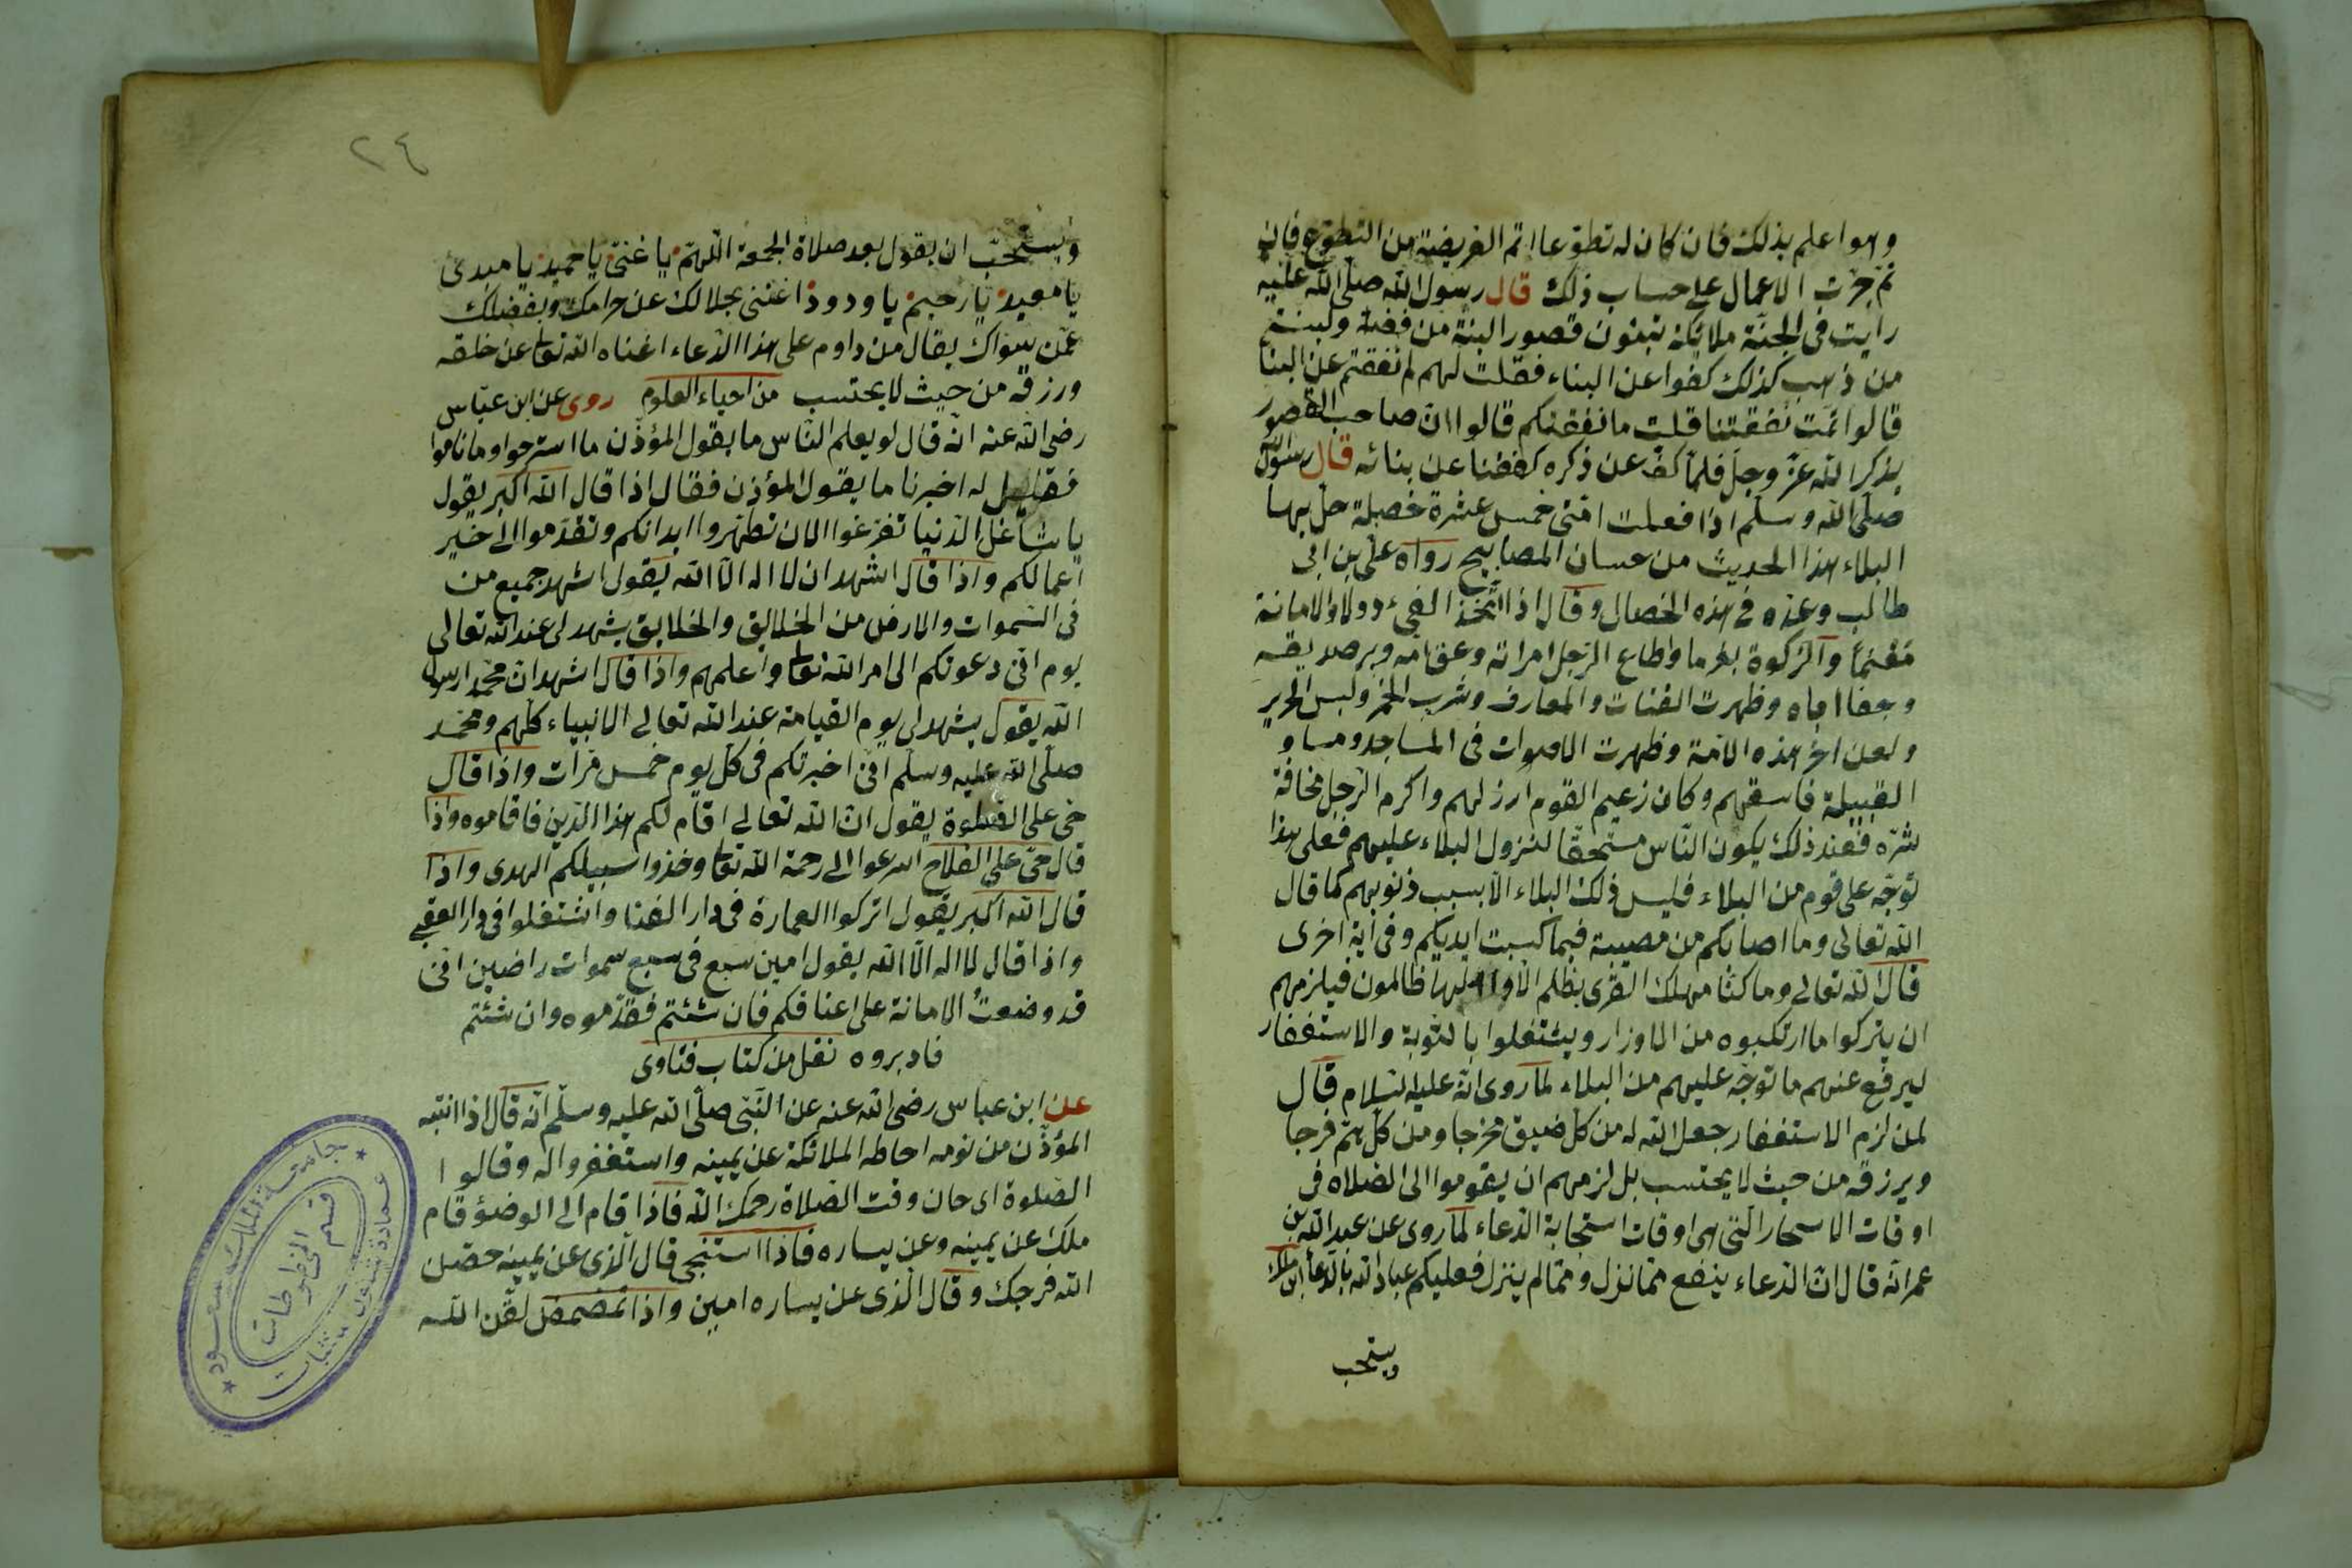 وهو اعلم بذلك فان كان له تطوّعا اتم الفريضة من التطوّع فان
ثم جرت الاعمال على حساب ذلك قال رسول الله صلّى الله عليه
رايت فى الجنّة ملائكة تبنون قصور البنة من فضة ولبنتم
من ذهب كذلك كفوا عن البناء فقلت لهم لم نفقتم عن البنا
قالوا تمّت نفقتنا قلت ما نفقتكم قالوا انّ صاحب القصور
يذكر الله عزّ وجلّ فلمّا كفّ عن ذكره كففنا عن بنائه قال رسول الله
صلّى الله وسلّم اذا فعلت امّتى خمس عشرة خصلة حلّ بها
البلاء هذا الحديث من حسان المصابيح رواه على بن ابى
طالب وعدّه فى هذه الخصال وقال اذا اتّخذ الفئ دولا والامانة
مغنماً والزكوة بغرما واطاع الرّجل امراته وعق امه وبر صديقه
وجفا اباه وظهرت القنات والمعارف وشرب الخمر ولبس الحرير
ولعن اخر هذه الامّة وظهرت الاصوات فى المساجد وساو
القبيلة فاسقهم وكان زعيم القوم ارزلهم واكرم الرّجل مخافة
شرّه فعند ذلك يكون النّاس مستحقّا لنزول البلاء عليهم فعلى هذا
توجّه على قوم من البلاء فليس ذلك البلاء الّا بسبب ذنوبهم كما قال
الله تعالى وما اصابكم من مصيبة فبما كسبت ايديكم وفى اية اخرى
قال الله تعالى وما كنّا مهلك القرى بظلم الّا واهلها ظالمون فيلزمهم
ان يتركوا ما ارتكبوه من الاوزار ويشتغلوا بالتوبة والاستغفار
ليرفع عنهم ما توجّه عليهم من البلاء لما روى انّه عليه السّلام قال
لمن لزم الاستغفار جعل الله له من كلّ ضيق مخرجا ومن كلّ همّ فرجا
ويرزقه من حيث لا يحتسب بل لزمهم ان يقوموا الى الصّلاة فى
اوقات الاسحار الّتى هى اوقات استجابة الدّعاء لما روى عن عبد الله بن
عمر انّه قال انّ الدّعاء ينفع ممّا نزل وممّا لم ينزل فعليكم عباد الله بالدّعاء ابن ملك
ويستحب
٢٤
ويستحبّ ان يقول بعد صلاة الجمعة اللّهمّ يا غنىّ يا حميد يا مبدئ
يا معيد يا رحيم يا ودود اغننى بحلالك عن حرامك وبفضلك
عمّن سواك يقال من داوم على هذا الدّعاء اغناه الله تعا عن خلقه
ورزقه من حيث لا يحتسب من احياء العلوم روى عن ابن عبّاس
رضى الله عنه انّه قال لو يعلم النّاس ما يقول المؤذّن ما استرحوا وما ناموا
فقيل له اخبرنا ما يقول المؤذن فقال اذا قال الله اكبر يقول
يا شاغل الدّنيا تفرغوا الان تطهروا ابدانكم وتقدّموا الى خير
اعمالكم واذا قال اشهد ان لا اله الّا الله يقول اشهد جميع من
فى السّموات والارض من الخلايق والخلايق يشهد لى عند الله تعالى
يوم انّى دعوتكم الى امر الله تعا واعلمهم واذا قال اشهد انّ محمّدا رسول
الله يقول يشهد لى يوم القيامة عند الله تعالى الانبياء كلّهم ومحمّد
صلّى الله عليه وسلّم انّى اخبرتكم فى كلّ يوم خمس مرّات واذا قال
حىّ على الصّلوة يقول انّ الله تعالى اقام لكم هذا الدّين فاقاموه واذا
قال حىّ على الفلاح اسرعوا الى رحمة الله تعا وخذوا سبيلكم الهدى واذا
قال الله اكبر يقول اتركوا العمارة فى دار الفنا واشتغلوا فى دار العقبى
واذا قال لا اله الّا الله يقول امين سبع فى سبع سموات راضين انّى
قد وضعت الامانة على اعناقكم فان شئتم فقدّموه وان شئتم
فادبروه نقل من كتاب فتاوى
عن ابن عباس رضى الله عنه عن النّبى صلّى الله عليه وسلّم انّه قال اذا انتبه
المؤذّن من نومه احاطه الملائكة عن يمينه واستغفروا له وقالوا
الصّلوة اى حان وقت الصّلاة رحمك الله فاذا قام الى الوضؤ قام
ملك عن يمينه وعن يساره فاذا استنجى قال الّذى عن يمينه حصّن
الله فرجك وقال الّذى عن يساره امين واذا تمضمض لقّن الله
جامعة الملك سعود
عمادة شئون مكتبات
قسم المخطوطات